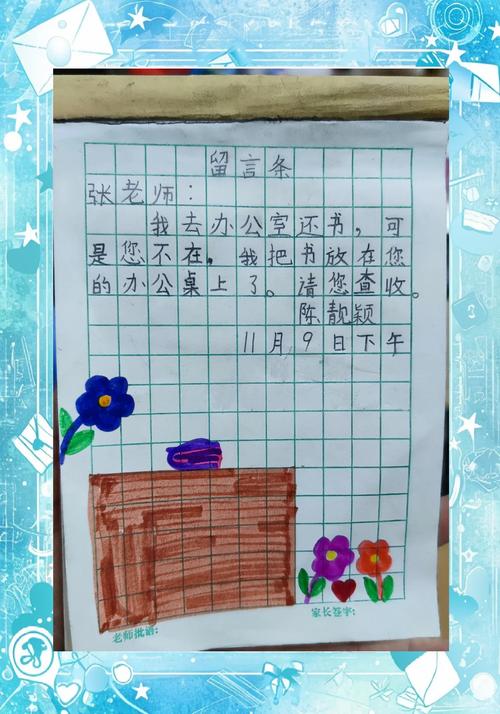 留言条
张老师：
我去办公室还书，可
是您不在，我把书放在您
的办公桌上了。请您查收。
陈靓颖
11月9日下午
家长签字：
老师批语：